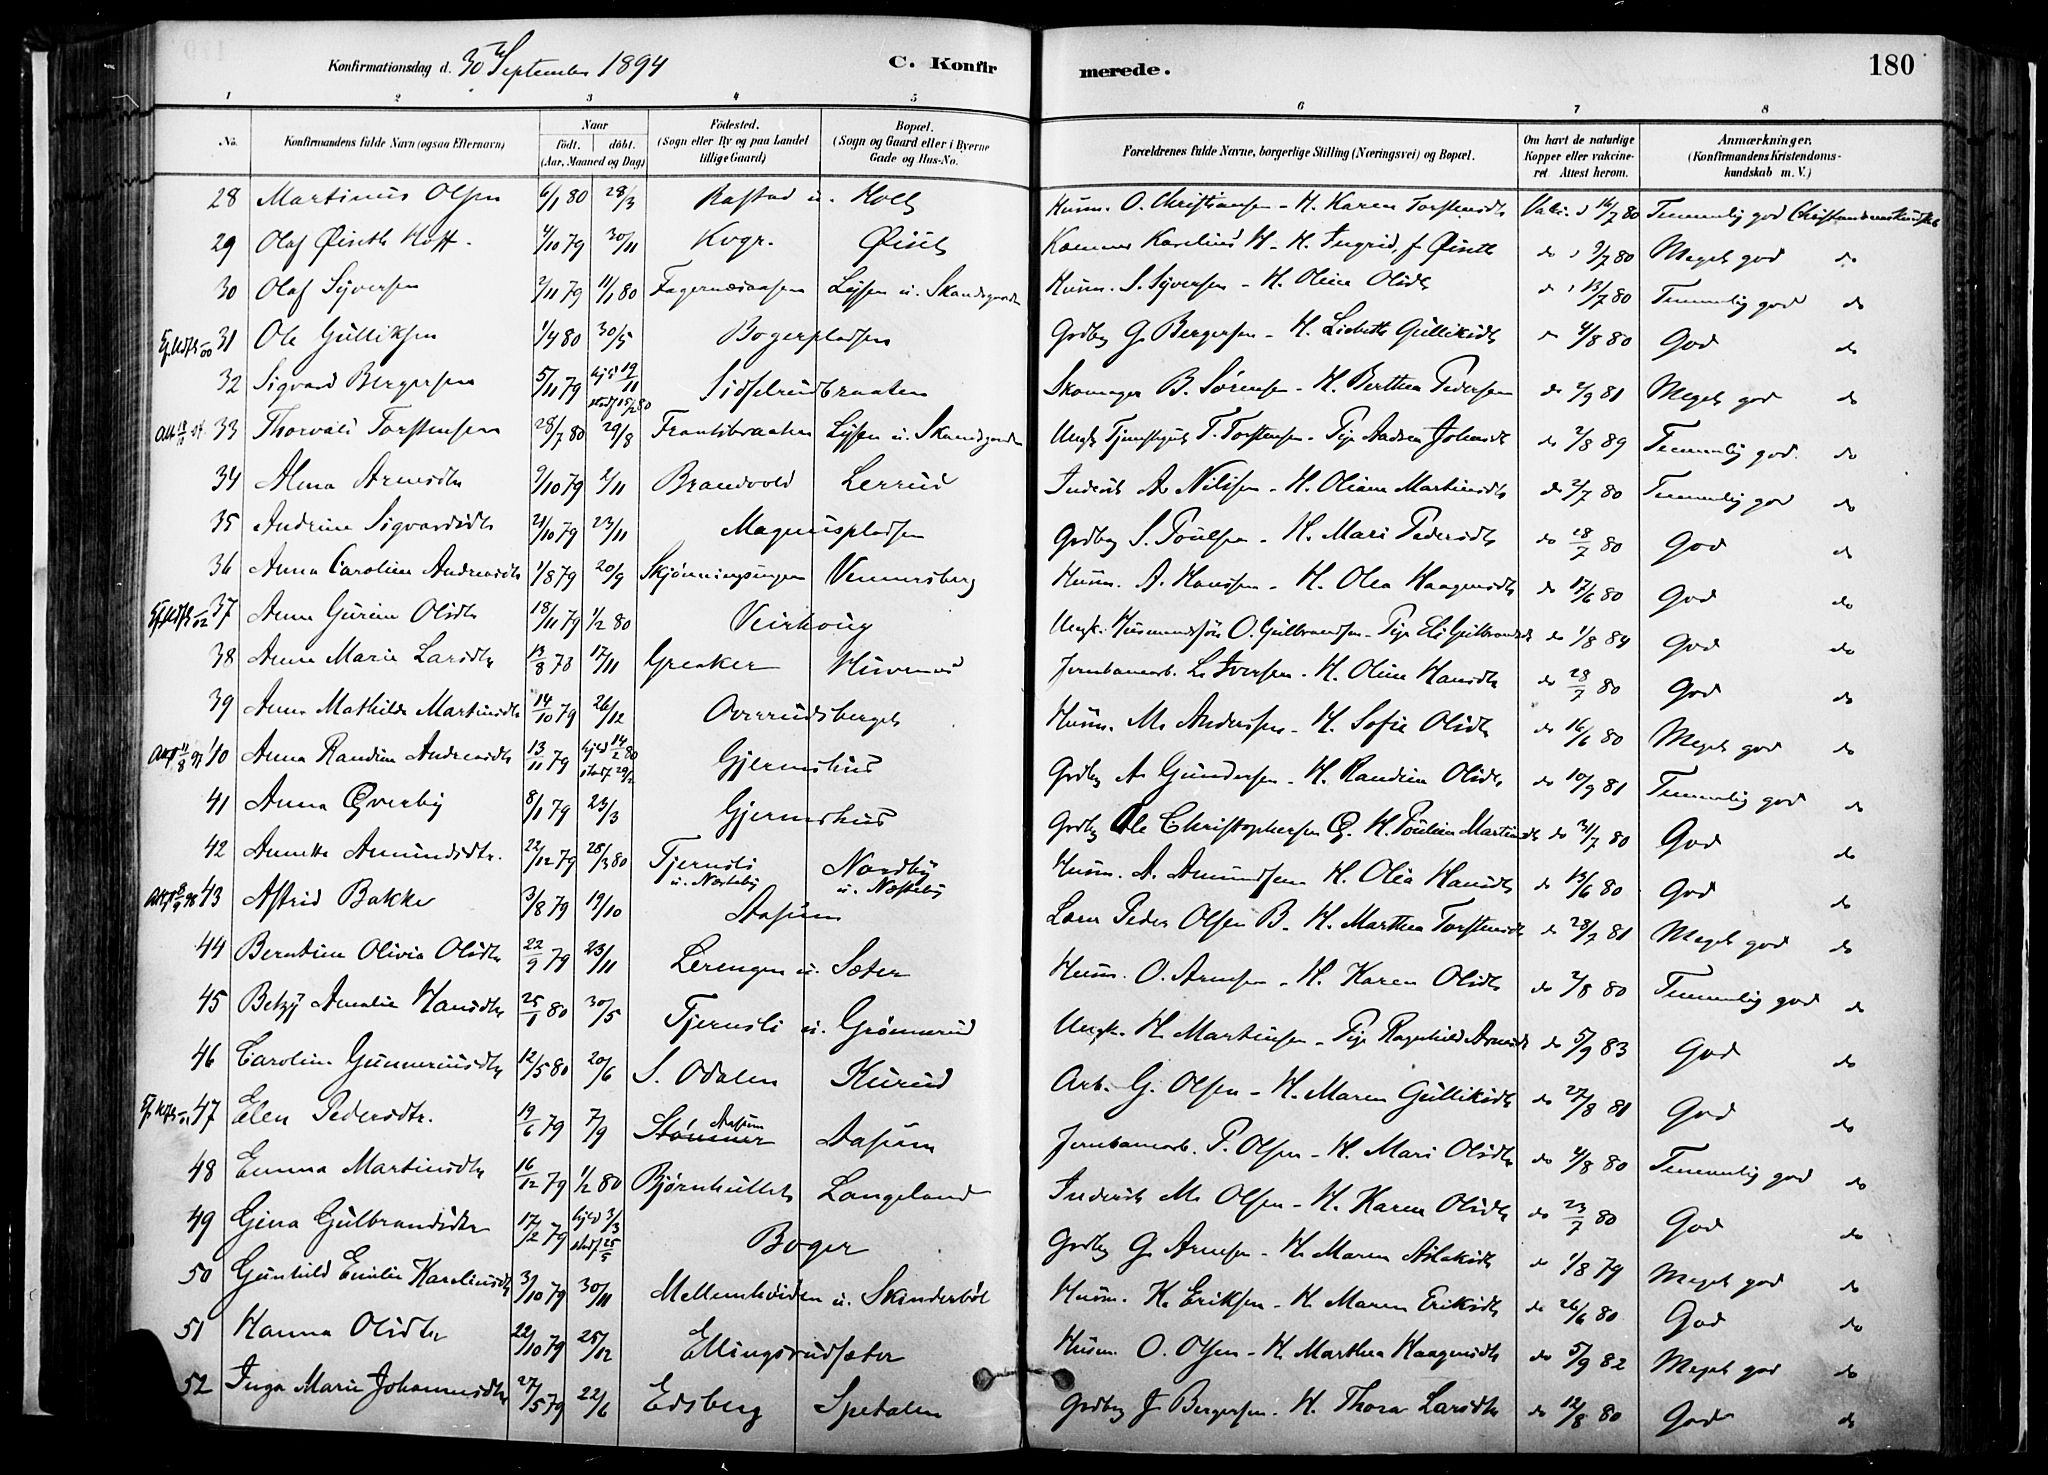 Konfirmationsdag d. 30 September 1894 C. Konfirmerede. 180
1 2 3 4 5 6 7 8
No. Konfirmandens fulde Navn (ogsaa Efternavn) Naar født. døbt. (Aar, Maaned og Dag) Fødested. (Sogn eller By og paa Landet tillige Gaard) Bopæl. (Sogn og Gaard eller i Byerne Gade og Hus-No. Forældrenes fulde Navne, borgerlige Stilling (Næringsvei) og Bopæl. Om havt de naturlige Kopper eller vakcineret Attest herom. Anmærkninger. (Konfirmandens Kristendomskundskab m. V.)
28 Martinus Olsen 6/1 80 28/3 Rastad u. Holt Husm. O. Christiansen - H. Karen Torstensdtr 16/7 80 Temmelig god
29 Olaf Øiseth Hoff. 4/10 79 30/11 Kvgr. Øiset Karelius H - H. Ingrid, f. Øiseth do 9/7 80 Meget god do
30 Olaf Syversen 2/11 79 11/1 80 Fagernæsaasen Lysen u. Skandsgaarden Husm. S. Syversen - H. Oline Olsdtr do 13/7 80 Temmelig god do
31 Ole Gulliksen 1/4 80 30/5 Bogerpladsen Grdbg G. Bergersen - H. Lisbeth Gulliksdtr 4/8 80 God do
32 Sigvard Bergersen 5/11 79 hjd 19/11 stadf 15/2 80 Sidselrudbraaten Skomager B. Sørensen - H. Berthea Pedersen do 2/9 81 Meget god do
33 Thorvald Torstensen 28/7 80 29/8 Frantsbraaten Lysen u. Skandsgaarden Ungk. Tjenestegut T. Torstensen - Pige Andrea Johansdtr do 2/8 89 Temmelig god. do
34 Alma Arnesdtr 9/10 79 2/11 Brandvold Lerrud Inderst A. Nilsen - H. Oliane Martinsdtr do 2/7 80 Temmelig god do
35 Andrine Sigvardsdtr 21/10 79 23/11 Magnuspladsen Grdbg S. Poulsen - H. Mari Pedersdtr do 28/7 80 God do
36 Anna Caroline Andreasdtr 1/8 79 20/9 Skjønningsengen Vennersberg Husm. A. Hansen - H. Olea Haagensdtr do 17/6 80 God do
37 Anne Gurine Olsdtr 18/11 79 1/2 80 Veirhoug Ungk. Husmandssøn O. Gulbrandsen - Pige Eli Gulbrandsdtr do 1/8 84 God do
38 Anne Marie Larsdtr 13/8 78 17/11 Greaker Huvenæs Jernbanearb. L. Iversen - H. Oline Hansdtr do 28/7 80 God do
39 Anne Mathilde Martinsdtr 14/10 79 26/12 Overudsberget Husm. M. Andersen - H. Sofie Olsdtr do 16/6 80 Meget god do
40 Anna Randine Andreasdtr 13/11 79 hjd 14/2 80 stadf 29/2 Gjermshus Grdbg A. Gundersen - H. Randine Olsdtr do 10/9 81 Temmelig god do
41 Anna Qverby 8/1 79 23/3 Gjermshus Grdbg Ole Christophersen Q. H. Pouline Martinsdtr do 31/7 80 God do
42 Annette Amundsdtr. 22/12 79 28/3 80 Tjernsli u. Næsteby Nordby u. Næsteby Husm. A. Amundsen H. Olea Hansdtr do 13/6 80 God do
43 Astrid Bakke 3/8 79 19/10 Aasum Lærer Peder Olsen B. H. Marthea Torstensdtr do 28/7 81 Meget god do
44 Berntine Olivia Olsdtr 22/9 79 23/11 Lerengen u. Sæter Husm. O. Arnesen - H. Karen Olsdtr do 2/8 80 Temmelig god do
45 Betzy Amalie Hansdtr 25/1 80 30/5 Tjernsli u. Grønnerud Ungk. H. Martinsen - Pige Ragnhild Arnesdtr do 5/9 83 God do
46 Caroline Gunneriusdtr 12/5 80 20/6 S. Odalen Kurud Arb. G. Olsen - H. Maren Gulliksdtr do 27/8 81 God do
47 Elen Pedersdtr. 19/6 79 7/9 Størmer Aasum Aasum Jernbanearb. P. Olsen - H. Mari Olsdtr do 4/8 80 Temmelig god do
48 Emma Martinsdtr 16/12 79 1/2 80 Bjørnhullet Langeland Inderst M. Olsen - H. Karen Olsdtr do 23/7 80 God do
49 Gina Gulbrandsdtr 17/2 79 hjd 3/3 stadf 25/5 Boger Grdbg G. Arnesen - H. Maren Aslaksdtr do 1/8 79 Meget god do
50 Gunhild Emilie Kareliusdtr 31/10 79 30/11 Mellemhviden u. Skinderbøl Husm. K. Eriksen - H. Maren Eriksdtr do 26/6 80 God do
51 Hanna Olsdtr 22/10 79 25/12 Ellingsrudsæter Husm. O. Olsen - H. Marthea Haagensdtr do 5/9 82 Meget god do
52 Inga Marie Johannesdtr 27/5 79 22/6 Edsberg Spetalen Grdbg J. Bergersen - H. Thora Larsdtr do 12/8 80 God do